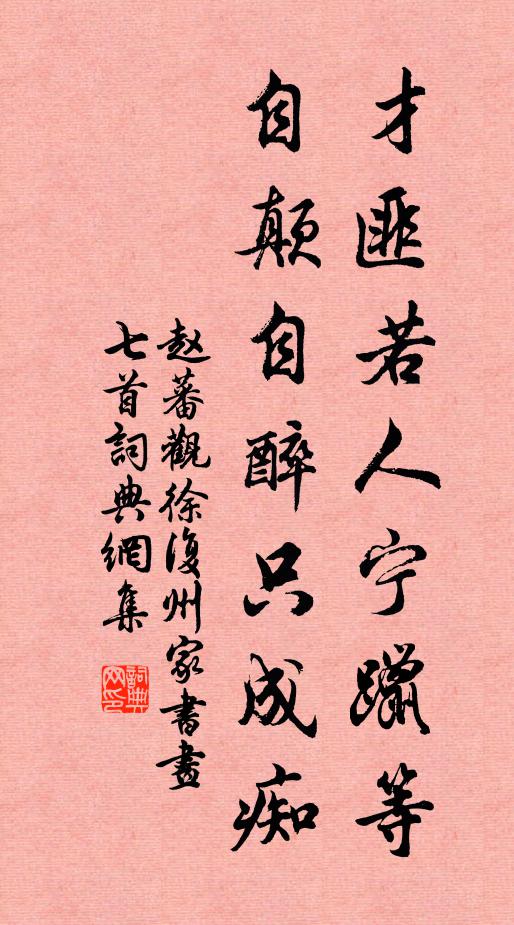 才匪若人宁躐等
自颠自醉只成痴
赵蕃觀徐復州家書畫
七首詞典網集
詞典网印